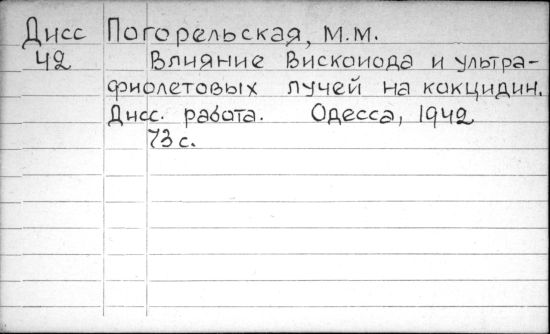 Дисс Погорельская, М.М.
42 Влияние Вискоиода и ультра-
фиолетовых лучей на кокцидии.
Дисс. работа. Одесса, 1942
73 с.